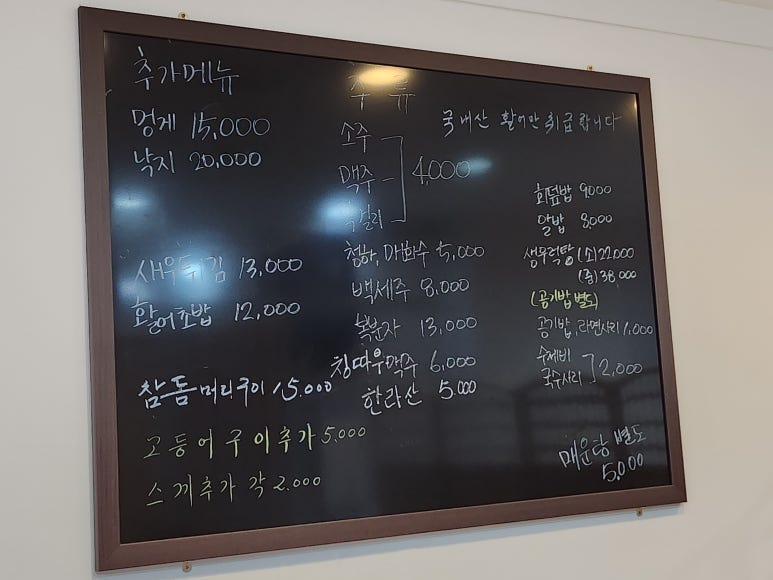 추가메뉴
멍게 15,000
낙지 20,000
새우튀김 13,000
활어초밥 12,000
참돔머리구이 15.000
고등어구이추가 5.000
스끼추가 각 2.000
주류
소주
맥주
막걸리
4,000
청하, 매화수 5,000
백세주 8,000
복분자 13,000
칭따우맥주 6,000
한라산 5.000
국내산 활어만 취급합니다
회덮밥 9,000
알밥 8,000
생우럭탕 (소)22000
(중)38000
(공기밥 별도)
공기밥, 라면사리 1,000
수제비
국수사리
2,000
매운탕 별도
5,000